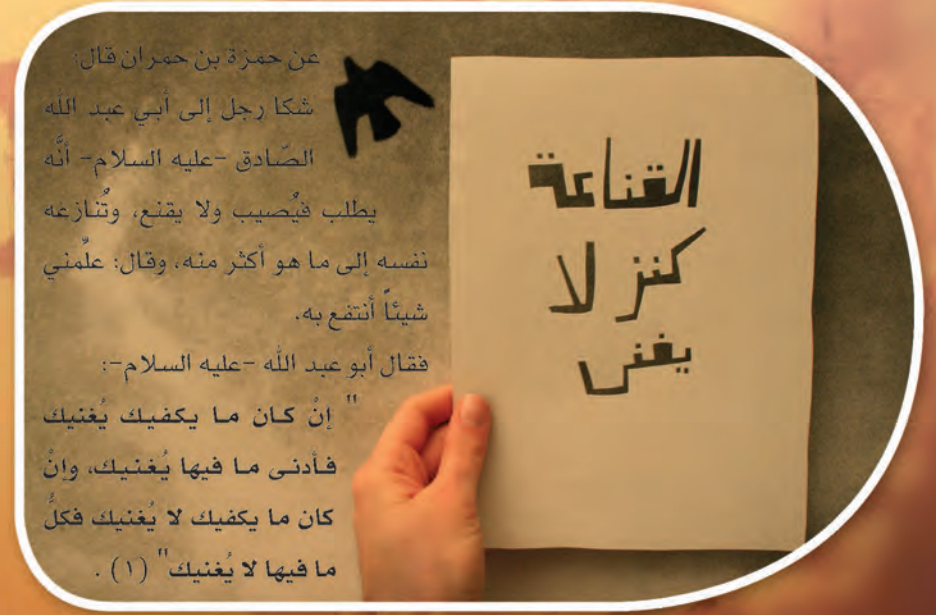 عن حمزة بن حمران قال:
شكا رجل إلى أبي عبد الله
الصّادق -عليه السلام- أنَّه
يطلب فيُصيب ولا يقنع، وتُنازعه
نفسه إلى ما هو أكثر منه، وقال: علّمني
شيئاً أنتفع به.
فقال أبو عبد الله -عليه السلام-:
" إنْ كان ما يكفيك يُغنيك
فأدنى ما فيها يُغنيك، وإنْ
كان ما يكفيك لا يُغنيك فكلُّ
ما فيها لا يُغنيك" (١) .
القناعة
كنز لا
يفنى